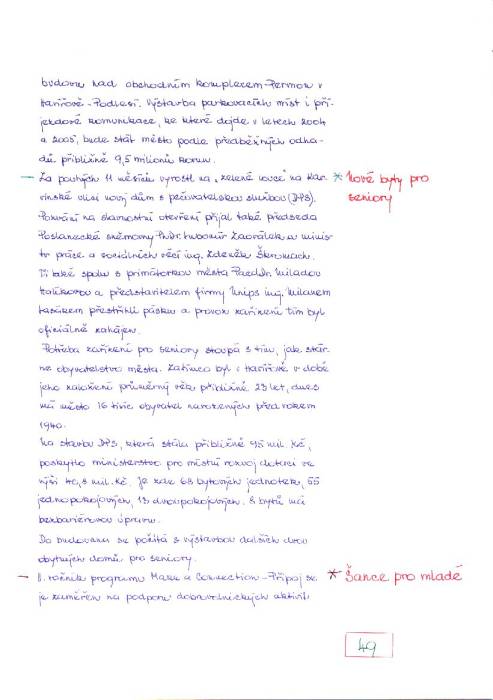 budovu nad obchodním komplexem Permon v
Havířově-Podlesí. Výstavba parkovacích míst i pří-
jezdové komunikace, ke které dojde v letech 2004
a 2005, bude stát město podle předběžných odha-
dů přibližně 9,5 milionu korun.
– Za pouhých 11 měsíců vyrostl na „zelené louce" na Kar- * Nové byty pro
vinské ulici nový dům s pečovatelskou službou (DPS). seniory
Pozvání na slavnostní otevření přijal také předseda
Poslanecké sněmovny PhDr. Lubomír Zaorálek a minis-
tr práce a sociálních věcí ing. Zdeněk Škromach.
Ti také spolu s primátorkou města PaedDr. Miladou
Halíkovou a představitelem firmy ing. Milanem
přestřihli pásku a provoz zařízení tím byl
oficiálně zahájen.
Potřeba zařízení pro seniory stoupá s tím, jak stár-
ne obyvatelstvo města. Zatímco byl v Havířově v době
jeho založení průměrný věk přibližně 23 let, dnes
má město 16 tisíc obyvatel narozených před rokem
1940.
Na stavbu DPS, která stála přibližně 95 mil. Kč,
poskytlo ministerstvo pro místní rozvoj dotaci ve
výši mil. Kč. Je zde 68 bytových jednotek, 55
jednopokojových, 13 dvoupokojových. 8 bytů má
bezbariérovou úpravu.
Do budoucna se počítá s výstavbou dalších dvou
obytných domů pro seniory.
– ročník programu Make a Connection – Připoj se * Šance pro mladé
je zaměřen na podporu dobrovolnických aktivit
49